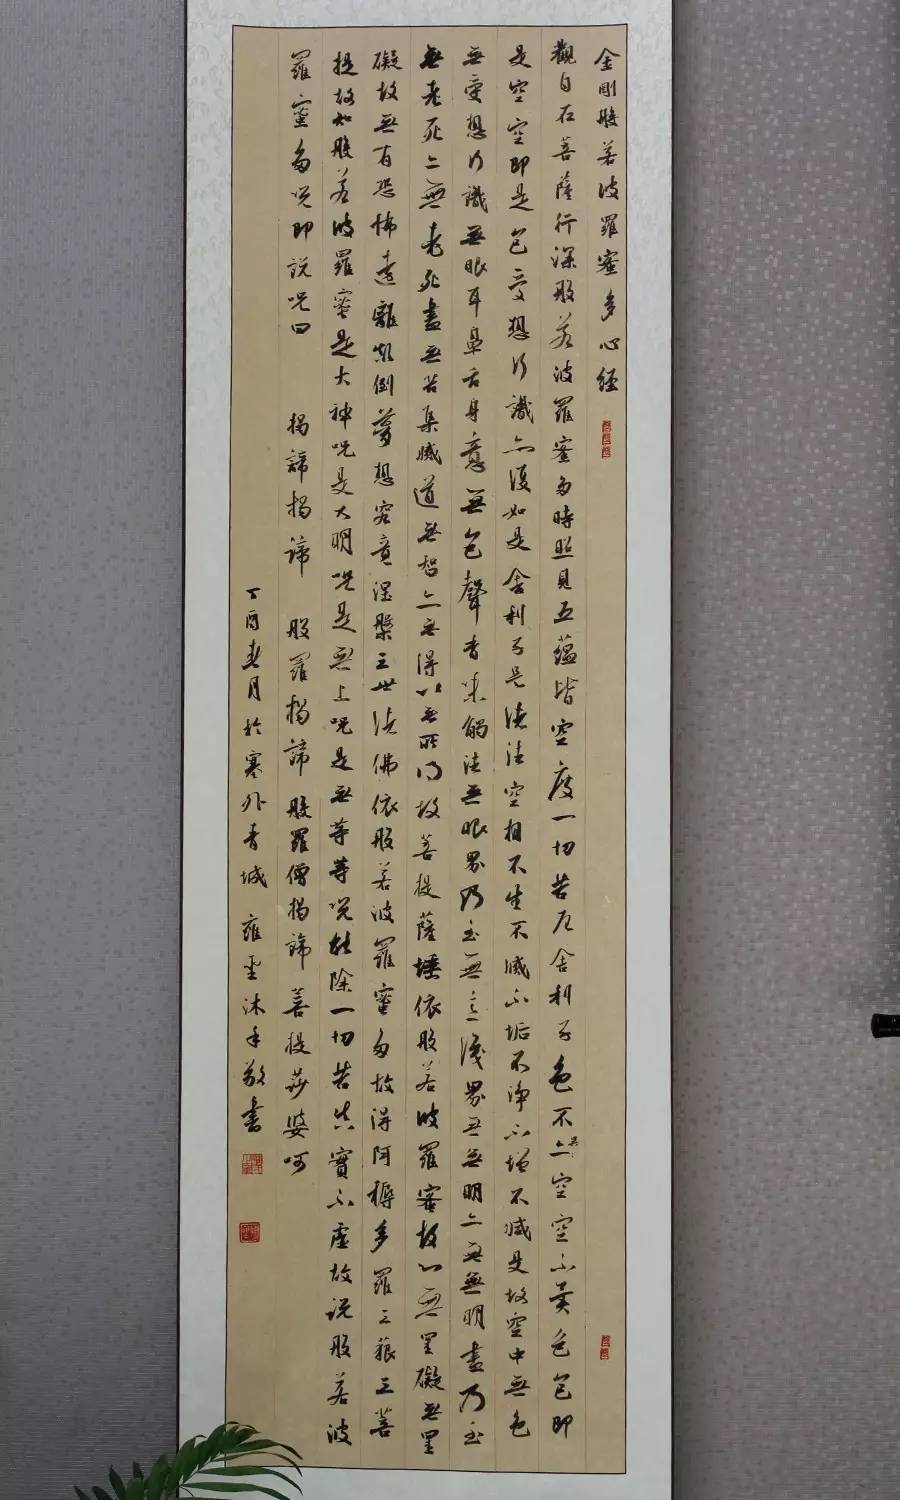 金剛般若波羅蜜多心經
觀自在菩薩行深般若波羅蜜多時照見五蘊皆空度一切苦厄舍利子色不空空不異色色即
是空空即是色受想行識亦復如是舍利子是諸法空相不生不滅不垢不淨不增不減是故空中無色
無受想行識無眼耳鼻舌身意無色聲香味觸法無眼界乃至無意識界無無明亦無無明盡乃至
無老死亦無老死盡無苦集滅道無智亦無得以無所得故菩提薩埵依般若波羅蜜故心無罣礙無罣
礙故無有恐怖遠離顛倒夢想究竟涅槃三世諸佛依般若波羅蜜多故得阿耨多羅三藐三菩
提故知般若波羅蜜是大神咒是大明咒是無上咒是無等等咒能除一切苦真實不虛故說般若波
羅蜜多咒即說咒曰 揭諦揭諦 般羅揭諦 般羅僧揭諦 菩提莎婆呵
丁酉春月於塞外青城 雍聖沐手敬書